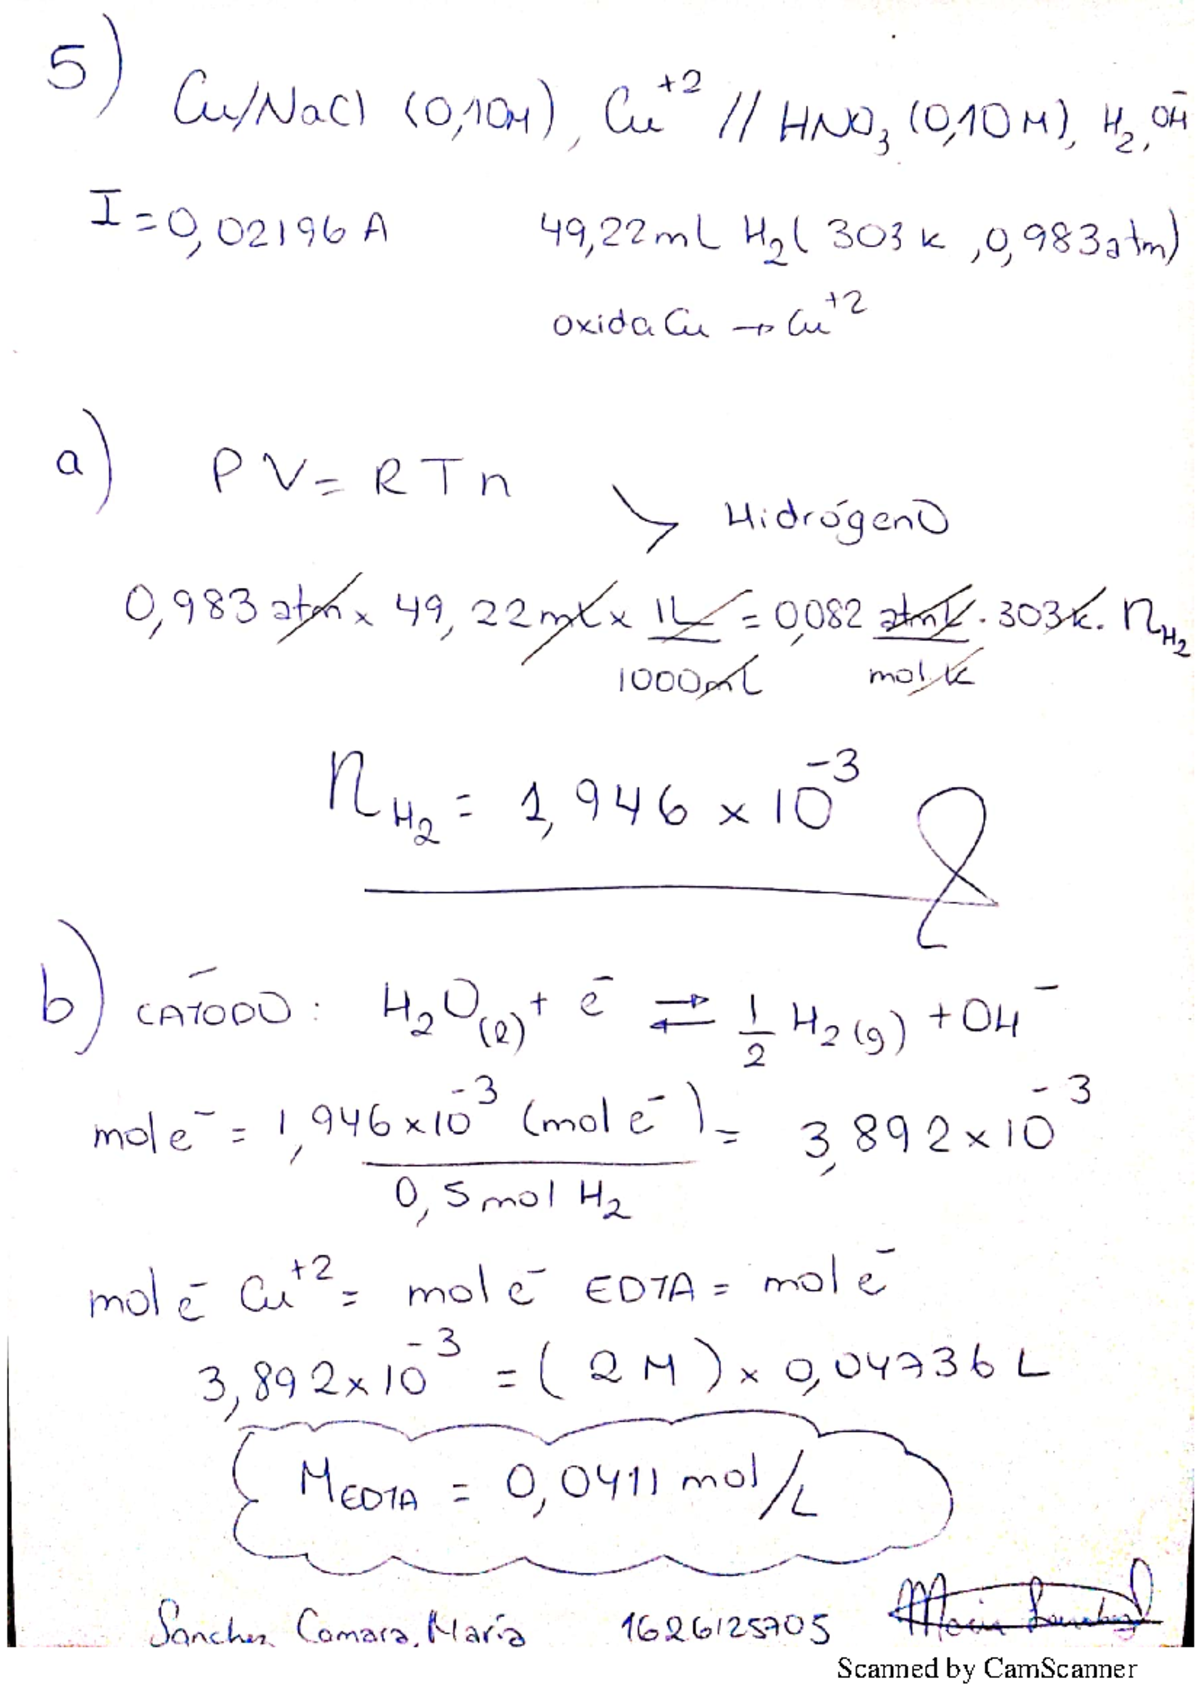 5)
Cu/NaCl (0,10M), Cu⁺² // HNO₃ (0,10M), H₂, OH⁻
I = 0,02196 A    49,22 mL H₂ ( 303 K , 0,983 atm)
oxida Cu → Cu⁺²
a) PV = RTn
↘ Hidrógeno
0,983 atm x 49,22 mL x 1L/1000mL = 0,082 atmL/mol.K . 303K . n_H₂
n_H₂ = 1,946 x 10⁻³
b) CATODO : H₂O(l) + e⁻ ⇄ 1/2 H₂(g) + OH⁻
mol e⁻ = 1,946 x 10⁻³ (mol e⁻) / 0,5 mol H₂ = 3,892 x 10⁻³
mol e⁻ Cu⁺² = mol e⁻ EDTA = mol e⁻
3,892 x 10⁻³ = ( 2 M ) x 0,04736 L
M_EDTA = 0,0411 mol/L
Sanchez Camara, María    1626125705
Scanned by CamScanner